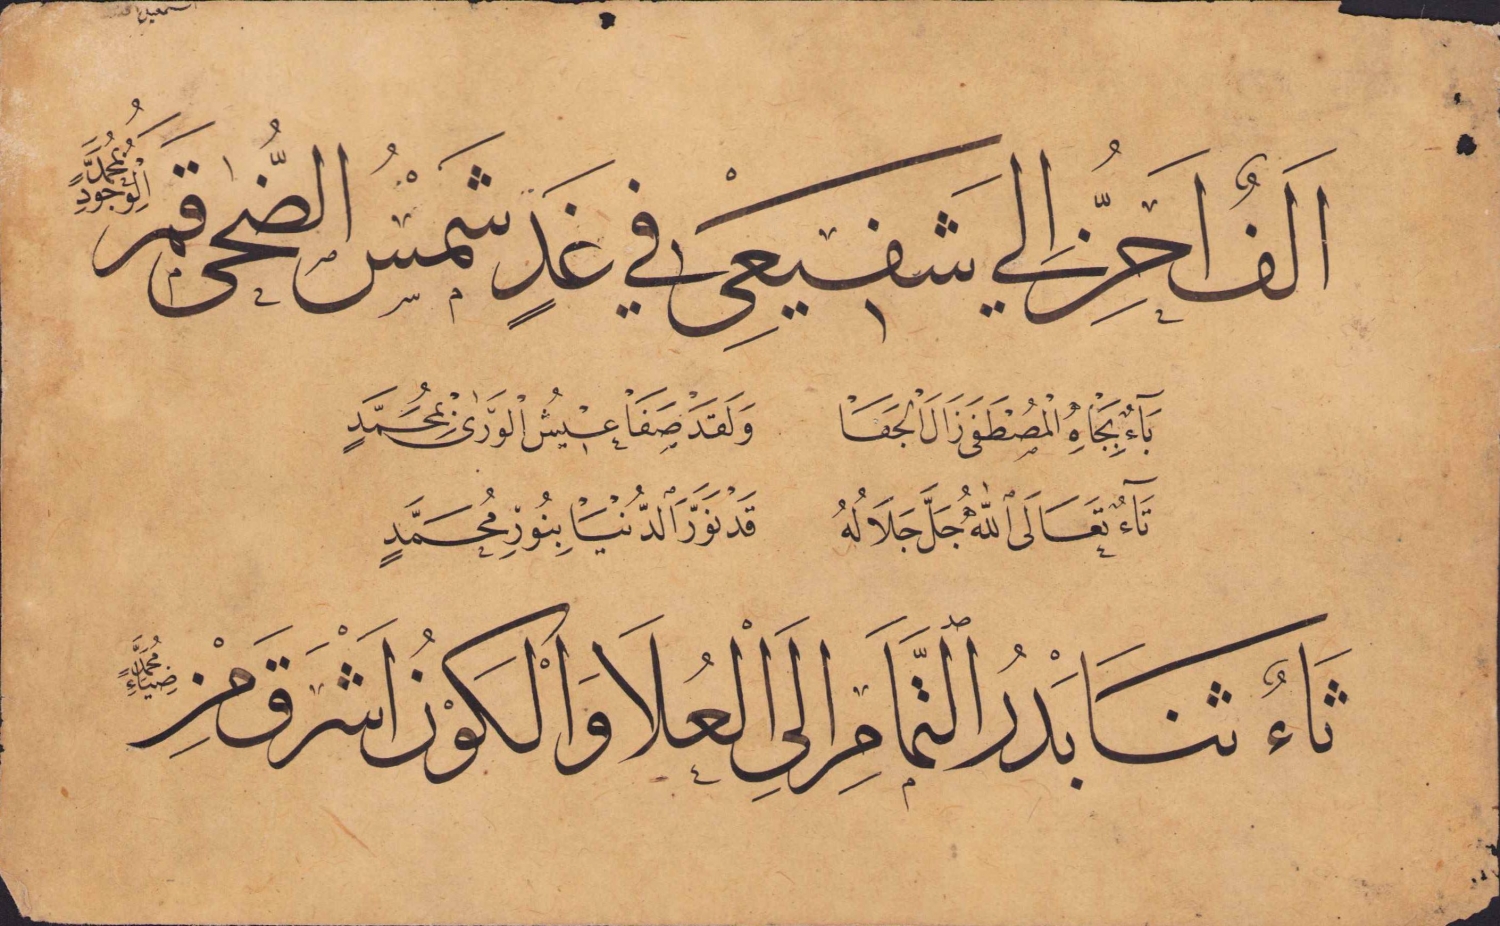 اَلِفٌ اَحِنُّ اِلي شَفيعيْ في غَدٍ شَمْسُ الضُّحى قَمَرُ الْوُجُودِ مُحَمَّدٍ
بَآءٌ بِجَاهِ الْمُصْطَفَى زَالَ الْجَفَا وَلَقَدْ صَفَا عَيْشُ الْوَرٰى بِمُحَمَّدٍ
تَآءٌ تَعَالَى اللّٰهُ جَلَّ جَلَالُهُ قَدْ نَوَّرَ الدُّنْيَا بِنُورِ مُحَمَّدٍ
ثَاءٌ ثَنَا بَدْرُ التَّمَامِ اِلَى الْعُلَا وَالْكَوْنُ اَشْرَقَ مِنْ ضِيَاءِ مُحَمَّدٍ